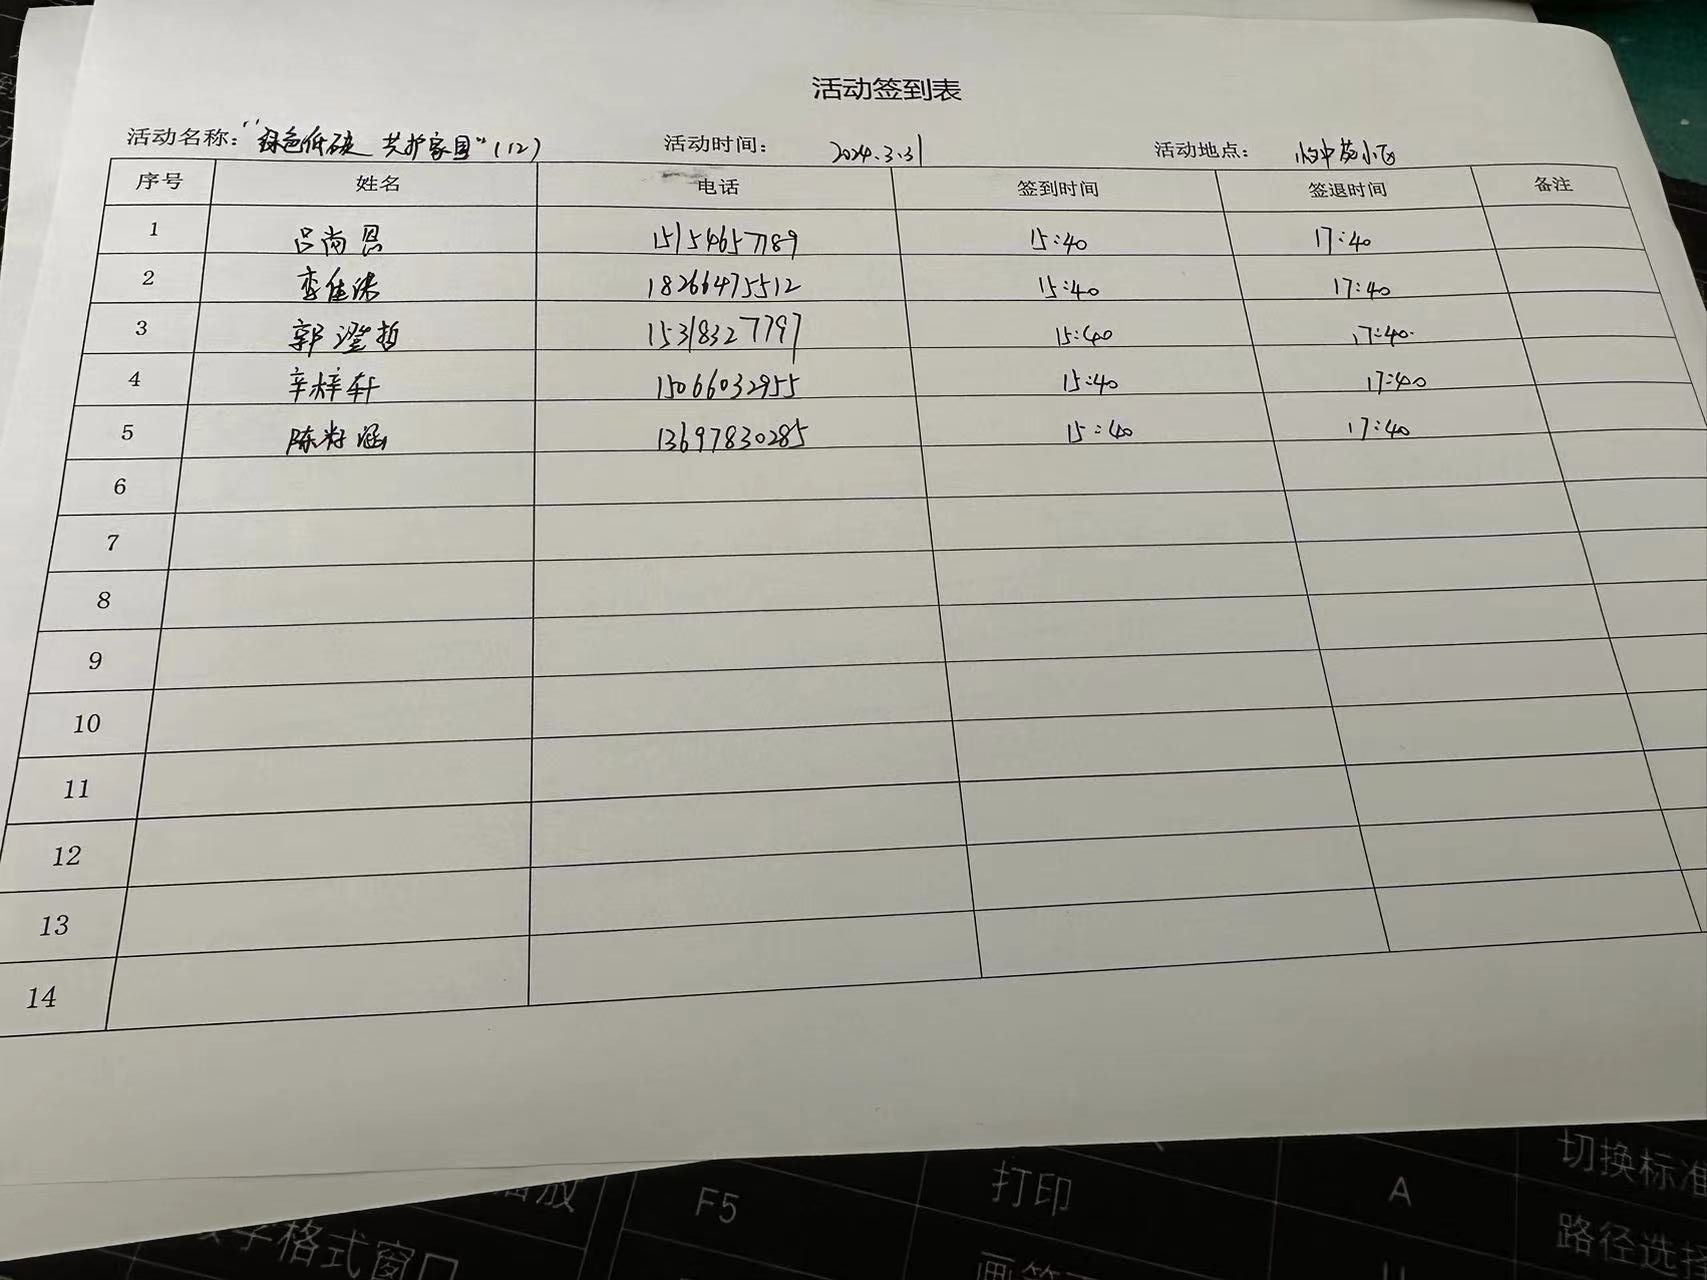 活动签到表
活动名称：“绿色低碳 共护家园”（12） 活动时间： 2024.3.31 活动地点： 中苑小区
序号 姓名 电话 签到时间 签退时间 备注
1 吕尚恩 15154657189 15:40 17:40
2 栾佳 18266475512 15:40 17:40
3 郭澄哲 15318327797 15:40 17:40
4 辛梓轩 15066032955 15:40 17:40
5 陈籽涵 13697830285 15:40 17:40
6
7
8
9
10
11
12
13
14
播放 F5 打印 A 切换标准
字格式窗口 路径选择